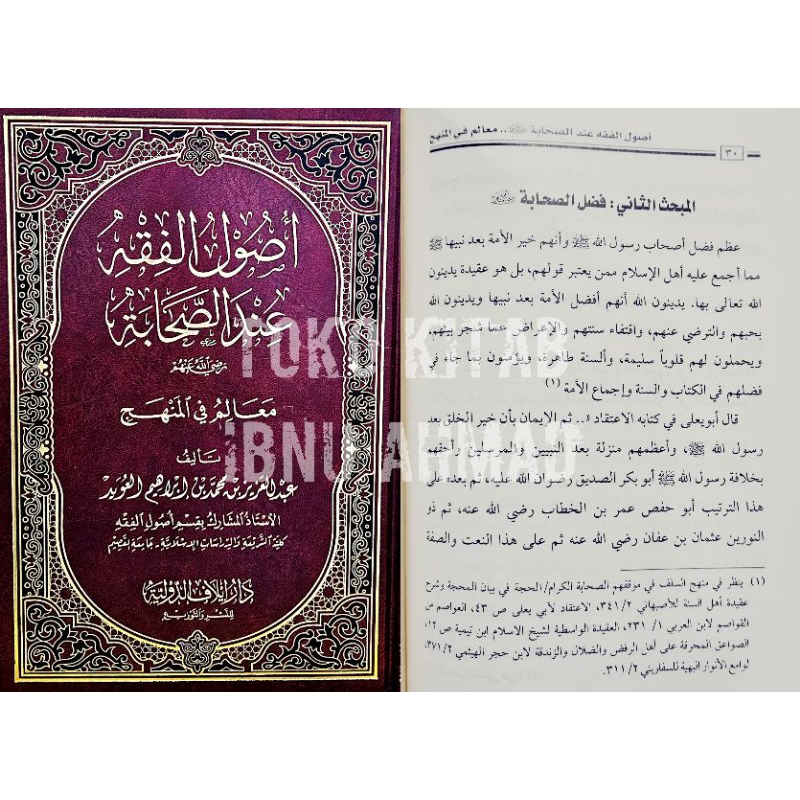 أصول الفقه
عند الصحابة
رضي الله عنهم
معالم في المنهج
تأليف
عبد العزيز بن محمد بن إبراهيم العويد
الأستاذ المشارك بقسم أصول الفقه
كلية الشريعة والدراسات الإسلامية - جامعة القصيم
دار إيلاف الدولية
للنشر والتوزيع
TOKO KITAB
IBNU AHMAD
أصول الفقه عند الصحابة ﷺ .. معالم في المنهج
٣٠
المبحث الثاني: فضل الصحابة
عظم فضل أصحاب رسول الله ﷺ وأنهم خير الأمة بعد نبيها ﷺ
مما أجمع عليه أهل الإسلام ممن يعتبر قولهم، بل هو عقيدة يدينون
الله تعالى بها. يدينون الله أنهم أفضل الأمة بعد نبيها ويدينون الله
بحبهم والترضي عنهم، واقتفاء سنتهم والإعراض عما شجر بينهم
ويحملون لهم قلوباً سليمة، وألسنة طاهرة، ويؤمنون بما جاء في
فضلهم في الكتاب والسنة وإجماع الأمة (١)
قال أبو يعلى في كتابه الاعتقاد «.. ثم الإيمان بأن خير الخلق بعد
رسول الله ﷺ، وأعظمهم منزلة بعد النبيين والمرسلين وأحقهم
بخلافة رسول الله ﷺ أبو بكر الصديق رضوان الله عليه، ثم بعده على
هذا الترتيب أبو حفص عمر بن الخطاب رضي الله عنه، ثم ذو
النورين عثمان بن عفان رضي الله عنه ثم على هذا النعت والصفة
(١) ينظر في منهج السلف في موقفهم الصحابة الكرام/ الحجة في بيان المحجة وشرح
عقيدة أهل السنة للأصبهاني ٣٤١/٢، الاعتقاد لأبي يعلى ص ٤٣، العواصم من
القواصم لابن العربي ٢٣١/١، العقيدة الواسطية لشيخ الاسلام ابن تيمية ص ١٢،
الصواعق المحرقة على أهل الرفض والضلال والزندقة لابن حجر الهيثمي ٣٧١/٢
لوامع الأنوار البهية للسفاريني ٣١١/٢.